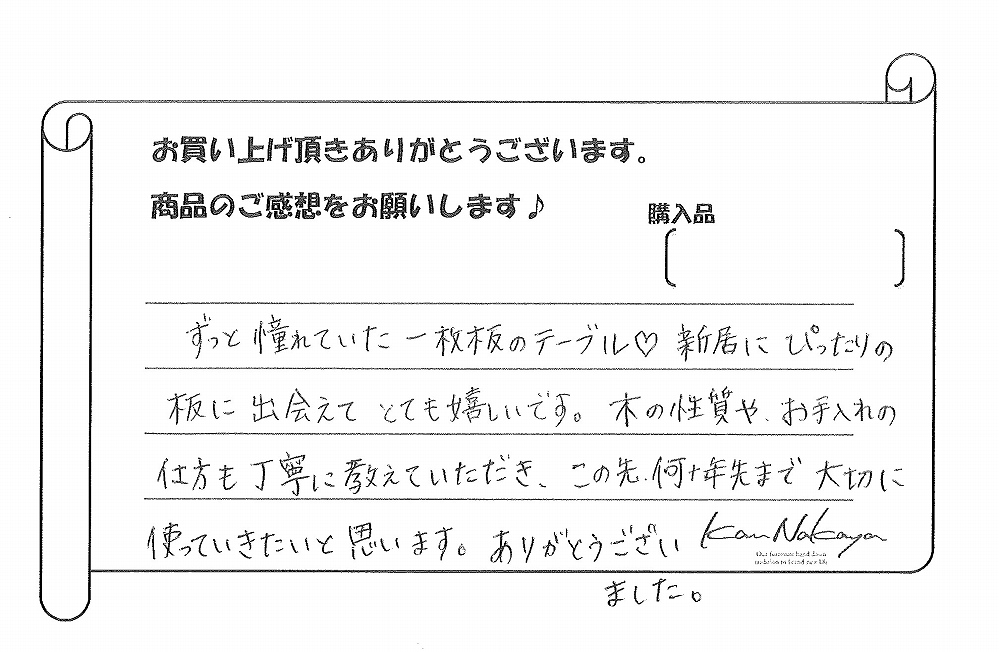 お買い上げ頂きありがとうございます。
商品のご感想をお願いします♪
購入品
ずっと憧れていた一枚板のテーブル♡ 新居にぴったりの
板に出会えてとても嬉しいです。木の性質や、お手入れの
仕方も丁寧に教えていただき、この先、何十年先まで大切に
使っていきたいと思います。ありがとうござい
ました。
Kan Nakaya